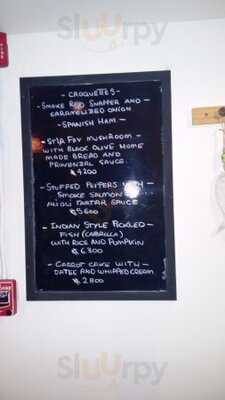 Sluurpy
- CROQUETTES -
- SMOKE RED SNAPPER AND -
CARAMELIZED ONION
- SPANISH HAM -
FRY MUSHROOM -
WITH BLACK OLIVE HOME
MADE BREAD AND
PROVENZAL SAUCE.
¢4200
- STUFFED PEPPERS WITH -
SMOKE SALMON
ALIOLI TARTAR SAUCE
¢5600
- INDIAN STYLE PICKLED -
FISH (CABRILLA)
WITH RICE AND PUMPKIN
¢6300
- CARROT CAKE WITH -
DATES AND WHIPPED CREAM
¢2800
Sluurpy